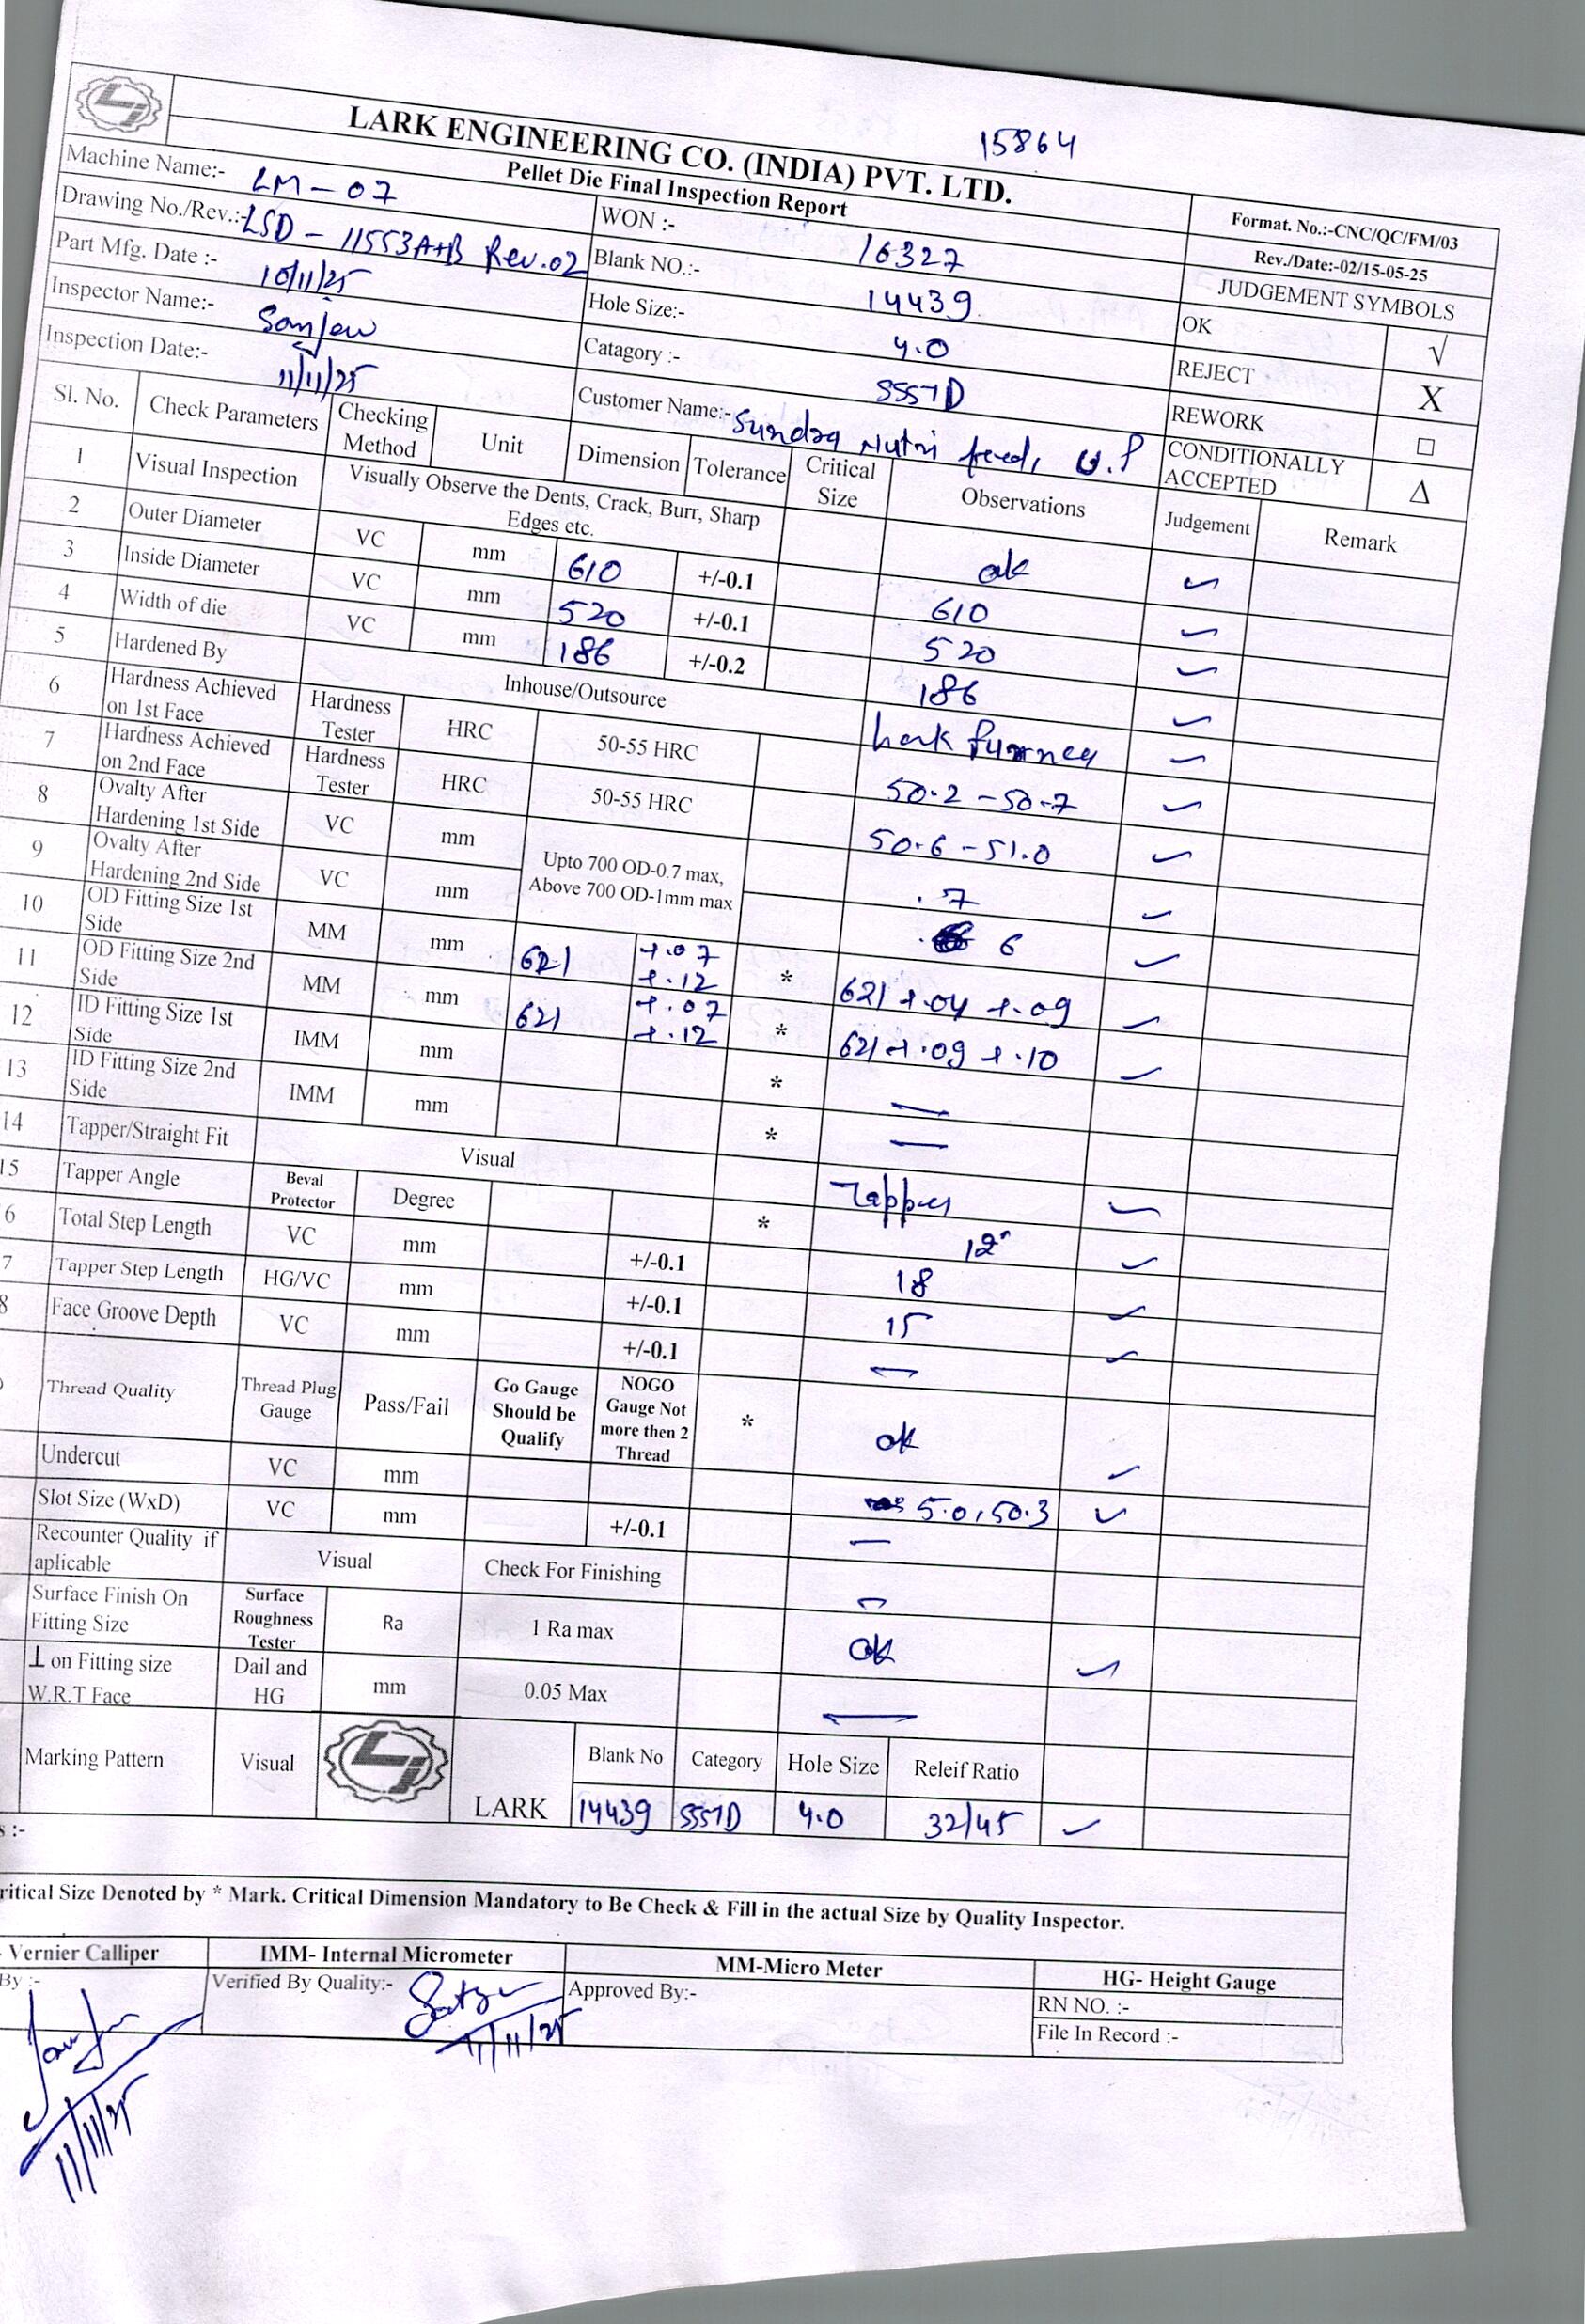 15864
LARK ENGINEERING CO. (INDIA) PVT. LTD.
Pellet Die Final Inspection Report
Format. No.:-CNC/QC/FM/03
Rev./Date:-02/15-05-25
Machine Name:- LM-07
WON :- 16327
JUDGEMENT SYMBOLS
Drawing No./Rev.:- LSD-11553A+B Rev.02
Blank NO.:- 14439
OK √
Part Mfg. Date :- 10/11/25
Hole Size:- 4.0
REJECT X
Inspector Name:- Sanjeev
Catagory :- SSS7D
REWORK □
Inspection Date:- 11/11/25
Customer Name:- Sundra Nutri feed, U.P
CONDITIONALLY ACCEPTED Δ
Sl. No. Check Parameters Checking Method Unit Dimension Tolerance Critical Size Observations Judgement Remark
1 Visual Inspection Visually Observe the Dents, Crack, Burr, Sharp Edges etc. ok ✓
2 Outer Diameter VC mm 610 +/-0.1 610 ✓
3 Inside Diameter VC mm 520 +/-0.1 520 ✓
4 Width of die VC mm 186 +/-0.2 186 ✓
5 Hardened By Inhouse/Outsource ✓
6 Hardness Achieved on 1st Face Hardness Tester HRC 50-55 HRC 50.2-50.7 ✓
7 Hardness Achieved on 2nd Face Hardness Tester HRC 50-55 HRC 50.6-51.0 ✓
8 Ovalty After Hardening 1st Side VC mm Upto 700 OD-0.7 max, Above 700 OD-1mm max .7 ✓
9 Ovalty After Hardening 2nd Side VC mm 6 ✓
10 OD Fitting Size 1st Side MM mm 621 +.07 +.12 * 621 +.04 +.09 ✓
11 OD Fitting Size 2nd Side MM mm 621 +.07 +.12 * 621 +.09 +.10 ✓
12 ID Fitting Size 1st Side IMM mm * —
13 ID Fitting Size 2nd Side IMM mm * —
14 Tapper/Straight Fit Visual Tapper ✓
15 Tapper Angle Beval Protector Degree * 12° ✓
6 Total Step Length VC mm +/-0.1 18 ✓
7 Tapper Step Length HG/VC mm +/-0.1 15 ✓
8 Face Groove Depth VC mm +/-0.1 —
Thread Quality Thread Plug Gauge Pass/Fail Go Gauge Should be Qualify NOGO Gauge Not more then 2 Thread * ok ✓
Undercut VC mm 5.0,50.3 ✓
Slot Size (WxD) VC mm +/-0.1 —
Recounter Quality if aplicable Visual Check For Finishing —
Surface Finish On Fitting Size Surface Roughness Tester Ra 1 Ra max ok ✓
⊥ on Fitting size W.R.T Face Dail and HG mm 0.05 Max —
Marking Pattern Visual LARK Blank No Category Hole Size Releif Ratio
14439 SSS7D 4.0 32/45 ✓
s :-
ritical Size Denoted by * Mark. Critical Dimension Mandatory to Be Check & Fill in the actual Size by Quality Inspector.
Vernier Calliper IMM- Internal Micrometer MM-Micro Meter HG- Height Gauge
By :- Verified By Quality:- Approved By:- RN NO. :-
File In Record :-
11/11/25
11/11/25